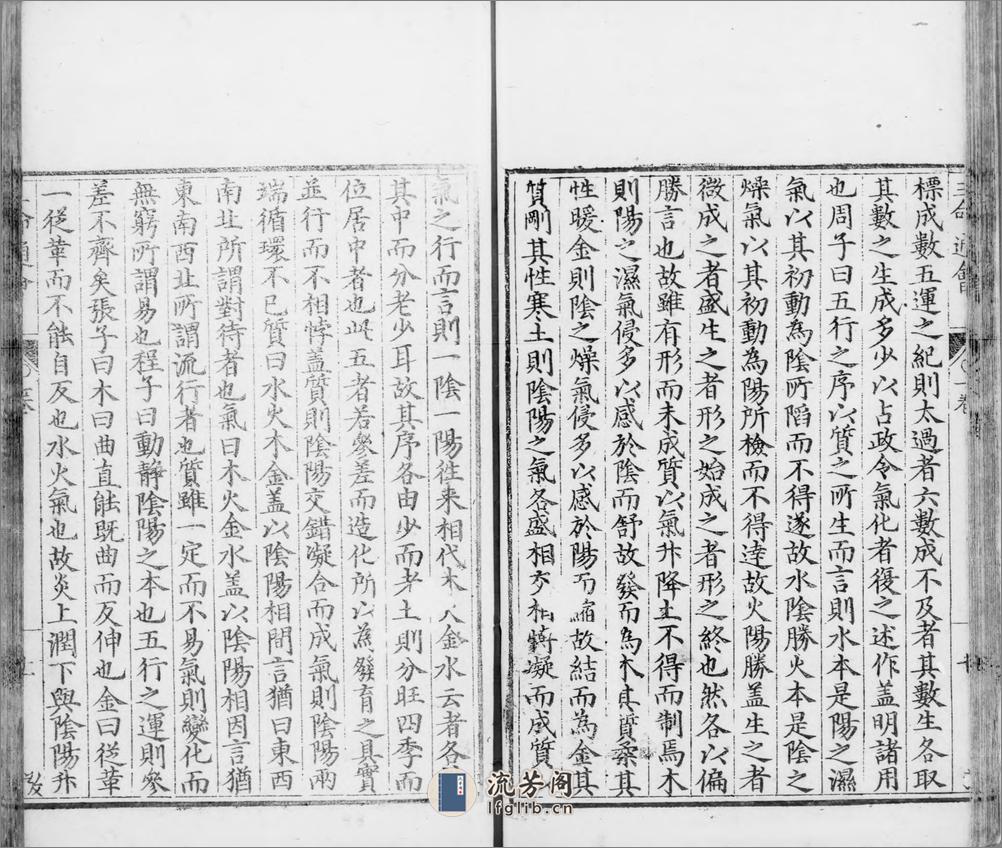 標成數五運之紀則太過者六數成不及者其數生各取
其數之生成多少以占政令氣化者復之述作蓋明諸用
也周子曰五行之序以質之所生而言則水本是陽之濕
氣以其初動為陰所䧟而不得遂故水陰勝火本是陰之
燥氣以其初動為陽所檢而不得達故火陽勝蓋生之者
微成之者盛生之者形之始成之者形之終也然各以偏
勝言也故雖有形而未成質以氣升降土不得而制焉木
則陽之濕氣侵多以感於陰而舒故發而為木其質柔其
性暖金則陰之燥氣侵多以感於陽而縮故結而為金其
質剛其性寒土則陰陽之氣各盛相交相摶凝而成質
氣之行而言則一陰一陽往来相代木火金水云者各
其中而分老少耳故其序各由少而老土則分旺四季而
位居中者也此五者若參差而造化所以為發育之具實
並行而不相悖蓋質則陰陽交錯凝合而成氣則陰陽兩
端循環不已質曰水火木金蓋以陰陽相間言猶曰東西
南北所謂對待者也氣曰木火金水蓋以陰陽相因言猶
東南西北所謂流行者也質雖一定而不易氣則變化而
無窮所謂易也程子曰動靜陰陽之本也五行之運則參
差不齊矣張子曰木曰曲直能既曲而反伸也金曰從革
一從革而不能自反也水火氣也故炎上潤下與陰陽升
三命通會
一卷
流芳阁
lfglib.com